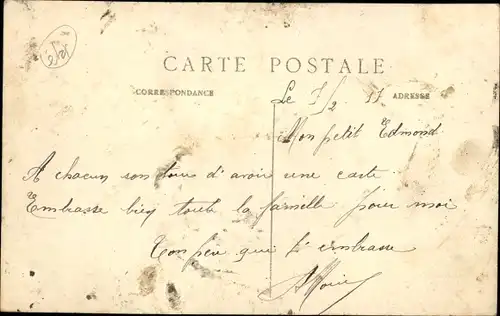 CARTE POSTALE
CORRESPONDANCE
ADRESSE
Le 7/2
Mon petit Edmond
A chacun son tour d'avoir une carte
Embrasse bien toute la famille pour moi
Ton qui t'embrasse